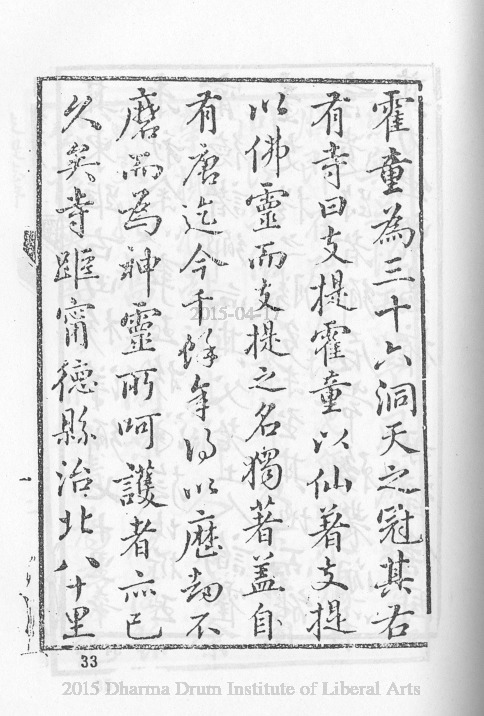 霍童為三十六洞天之冠其右
有寺曰支提霍童以仙著支提
以佛靈而支提之名獨著蓋自
有唐迄今千餘年得以歷劫不
磨而為神靈所呵護者亦已
久矣寺距甯德縣治北八十里
2015-04-17
33
2015 Dharma Drum Institute of Liberal Arts